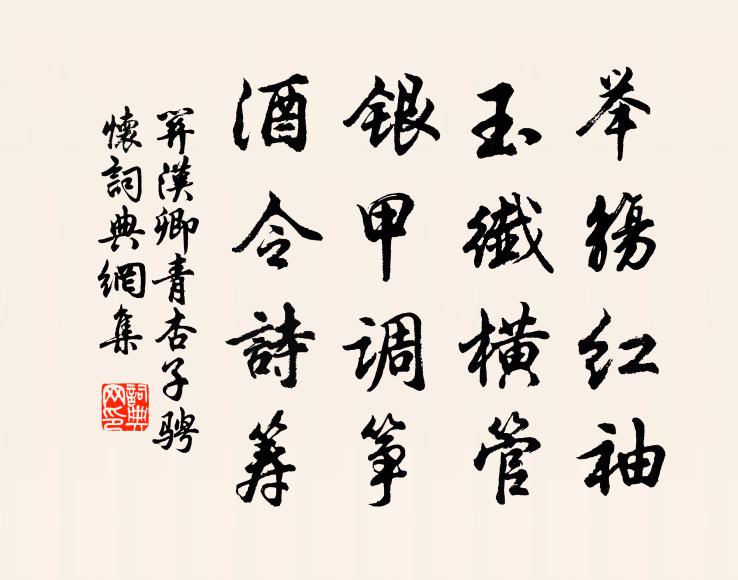 举觞红袖
玉纖橫管
银甲调筝
酒令詩筹
関漢卿青杏子骋
懷詞典網集
詞典网印